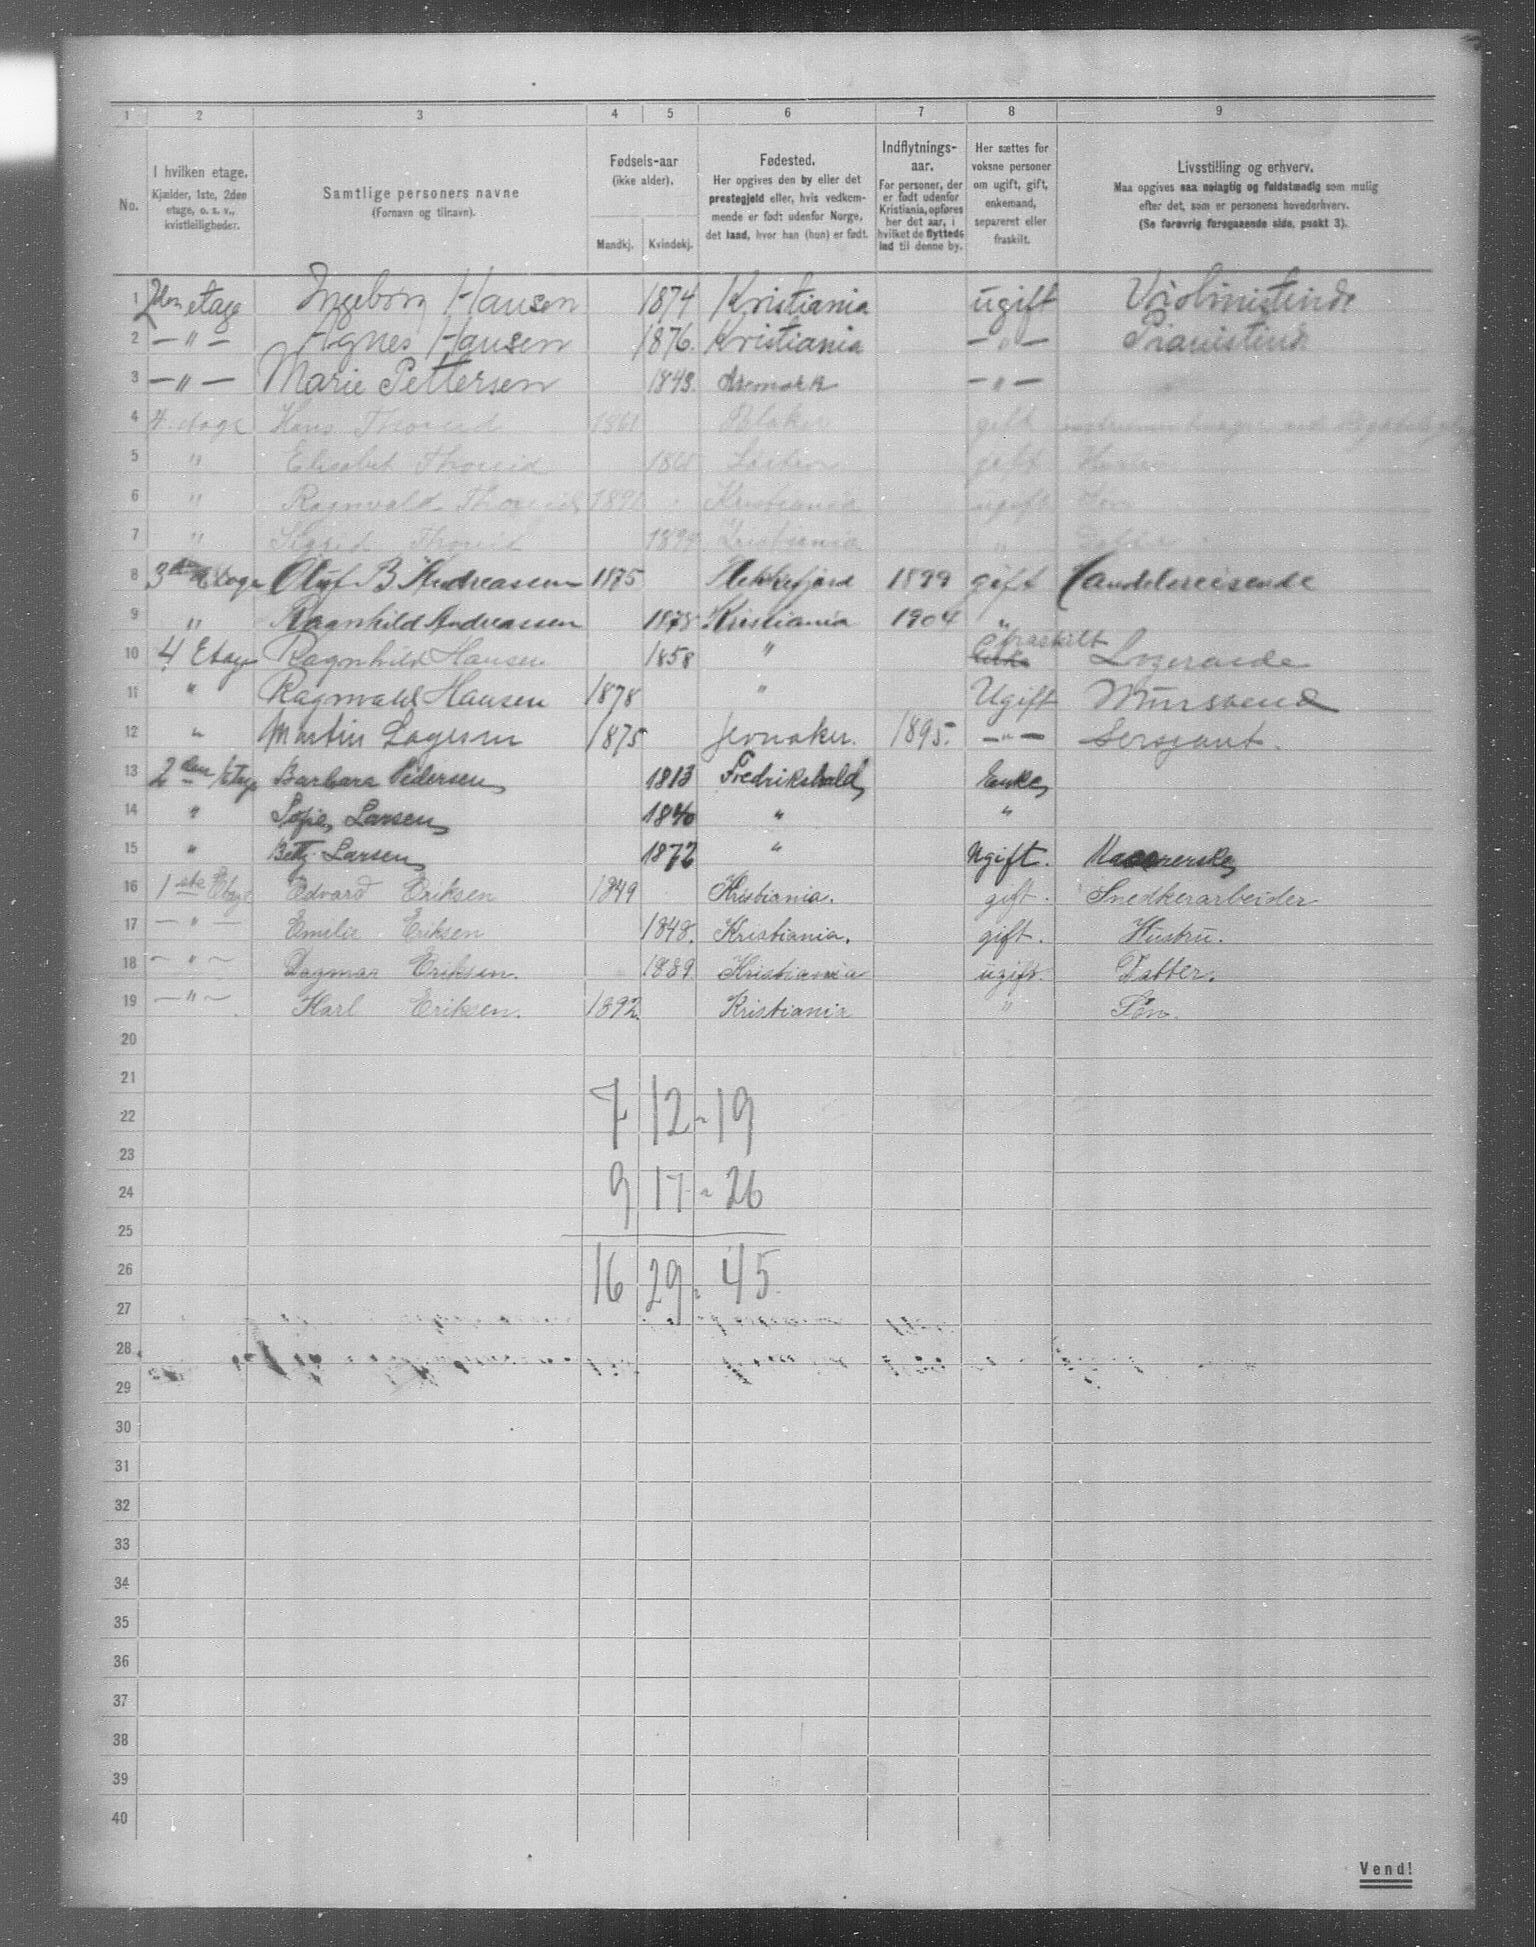 1 2 3 4 5 6 7 8 9
No.
I hvilken etage.
Kjælder, 1ste, 2den
etage, o. s. v.,
kvistleiligheder.
Samtlige personers navne
(Fornavn og tilnavn).
Fødsels-aar
(ikke alder).
Mandkj. Kvindekj.
Fødested.
Her opgives den by eller det
prestegjeld eller, hvis vedkom-
mende er født udenfor Norge,
det land, hvor han (hun) er født.
Indflytnings-
aar.
For personer, der
er født udenfor
Kristiania, opføres
her det aar, i
hvilket de flyttede
ind til denne by.
Her sættes for
voksne personer
om ugift, gift,
enkemand,
separeret eller
fraskilt.
Livsstilling og erhverv.
Maa opgives saa nøiagtig og fuldstændig som mulig
efter det, som er personens hovederhverv.
(Se forøvrig foregaaende side, punkt 3).
1 2den etage Ingeborg Hansen 1874 Kristiania ugift Violinistinde
2 — " — Agnes Hansen 1876. Kristiania — " — Pianistinde
3 — " — Marie Pettersen 1843. Aremark — " —
4 4. etage Hans 1861 Blaker gift
5 " Elisabet gift
6 " Ragnvald Kristiania ugift Søn
7 " Sigrid Kristiania " Datter
8 3die Etage Oluf B Andreassen 1875 Flekkefjord 1899 gift Handelsreisende
9 " Ragnhild Andreassen 1878 Kristiania 1904 "
10 4 Etage Ragnhild Hansen 1858 " Enke fraskilt Logerende
11 " Ragnvald Hansen 1878 " Ugift Mursvend
12 " Martin 1875 Jevnaker. 1895. — " — Sergeant.
13 2den Etage Barbara Pedersen 1813 Fredrikshald Enke
14 " Sofie Larsen 1840 " "
15 " Betzy Larsen 1872 " Ugift.
16 1ste Etage Edvard Eriksen 1849 Kristiania. gift. Snedkerarbeider
17 — " — Emilie Eriksen 1848. Kristiania. gift. Hustru.
18 — " — Dagmar Eriksen. 1889 Kristiania ugift. Datter.
19 — " — Karl Eriksen. 1892. Kristiania " Søn.
20
21
22 7 12 - 19
23
24 9 17 - 26
25
26 16 29. 45.
27
28
29
30
31
32
33
34
35
36
37
38
39
40
Vend!